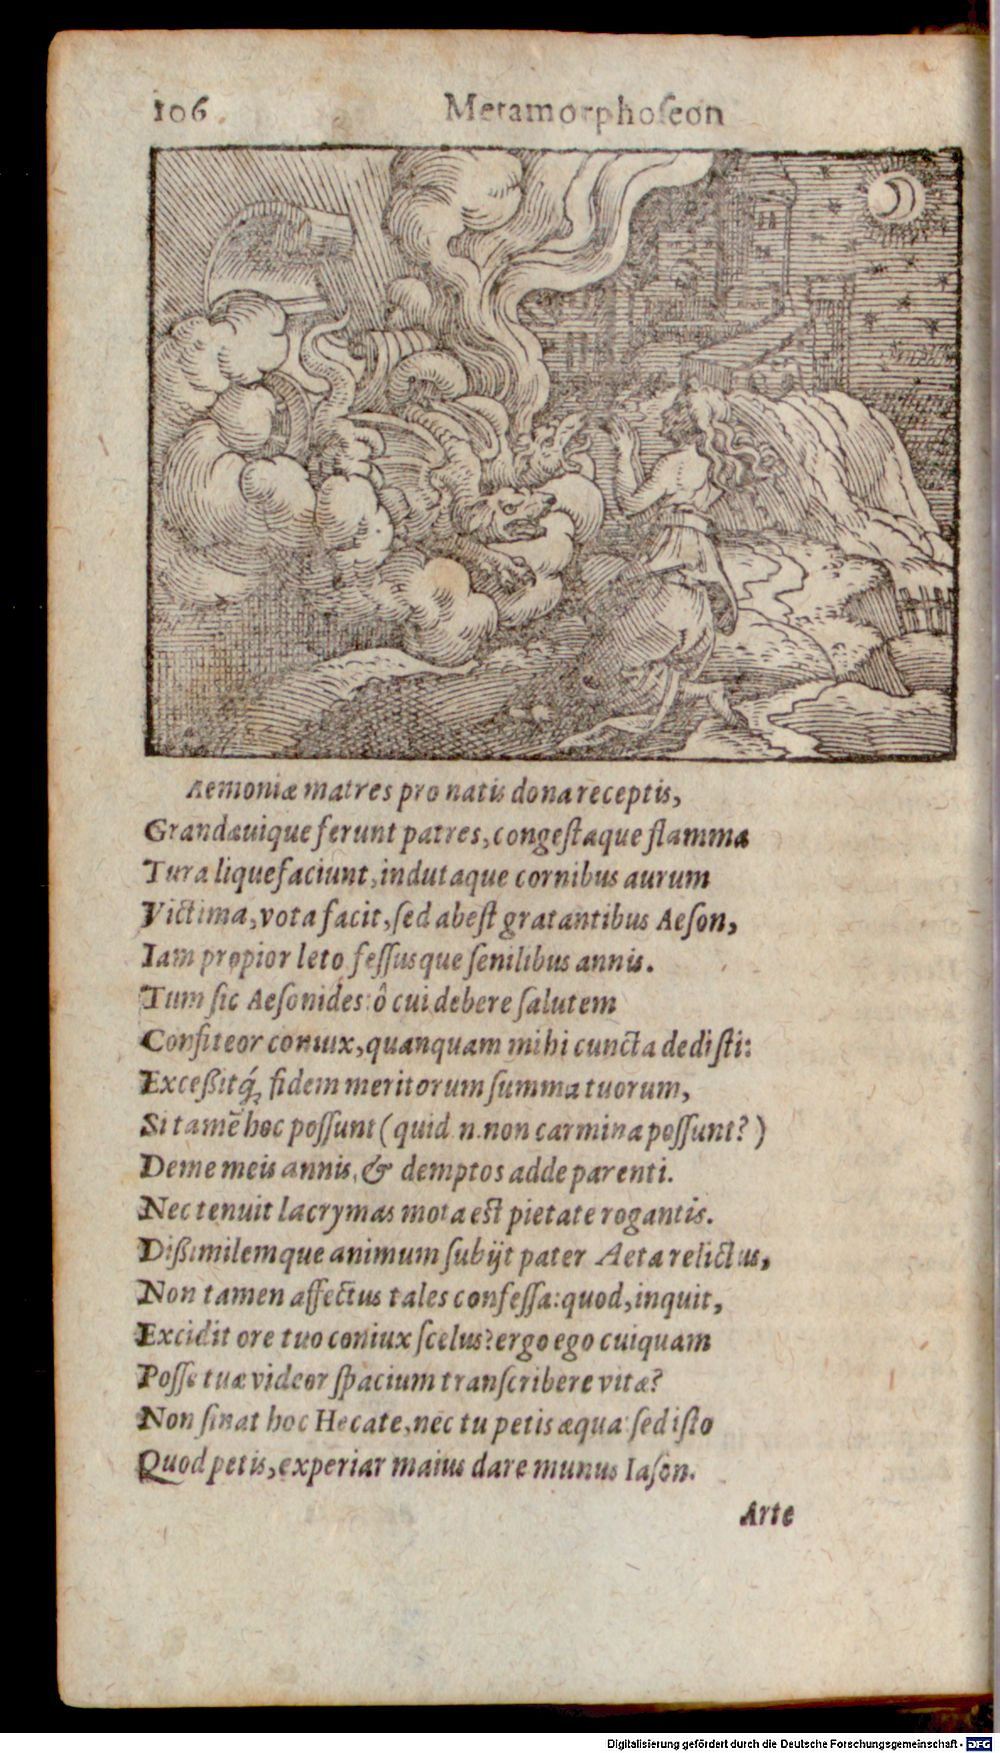 106. Metamorphoſeon
Aemoniæ matres pro natis dona receptis,
Grandæuique ferunt patres, congeſtaque flamma
Tura liquefaciunt, indutaque cornibus aurum
Victima, vota facit, ſed abeſt gratantibus Aeſon,
Iam propior leto feſſusque ſenilibus annis.
Tum ſic Aeſonides: ô cui debere ſalutem
Confiteor coniux, quanquam mihi cuncta dediſti:
Exceßitq́; fidem meritorum ſumma tuorum,
Si tamē hoc poſſunt (quid .n. non carmina poſſunt?)
Deme meis annis, & demptos adde parenti.
Nec tenuit lacrymas mota eſt pietate rogantis.
Dißimilemque animum ſubijt pater Aeta relictus,
Non tamen affectus tales confeſſa: quod, inquit,
Excidit ore tuo coniux ſcelus? ergo ego cuiquam
Poſſe tuæ videor ſpacium tranſcribere vitæ?
Non ſinat hoc Hecate, nec tu petis æqua: ſed iſto
Quod petis, experiar maius dare munus Iaſon.
Arte
Digitalisierung gefördert durch die Deutsche Forschungsgemeinschaft - DFG